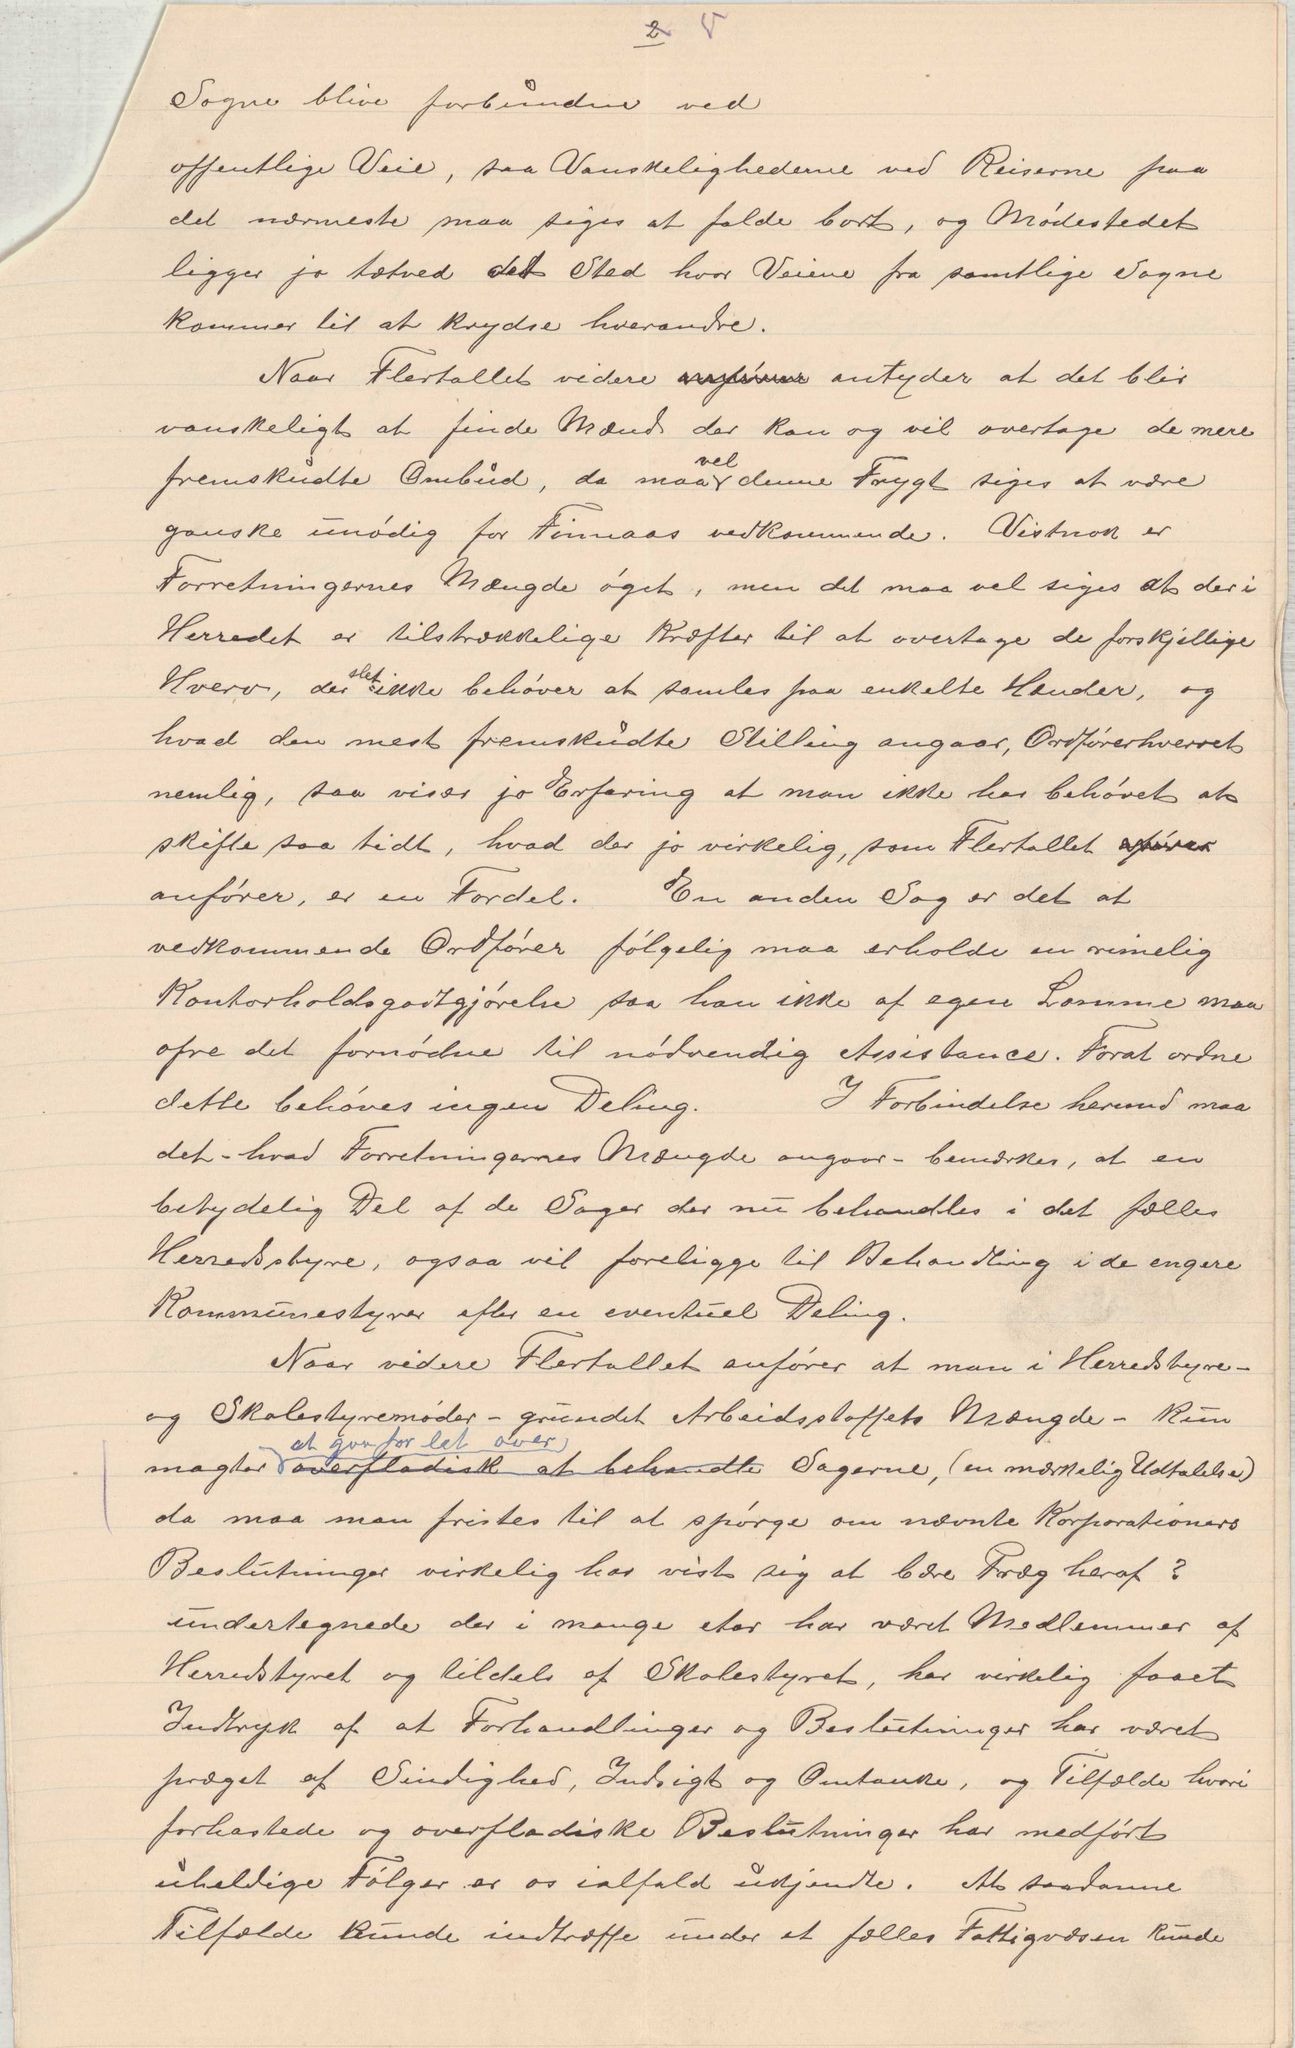 2 V
Sogne blive forbundne ved
offentlige Veie, saa Vanskelighederne ved Reiserne paa
det nærmeste maa siges at falde bort, og Mødestedet
ligger jo tætved det Sted hvor Veiene fra samtlige Sogne
kommer til at krydse hverandre.
Naar Flertallet videre anfører antyder at det blir
vanskeligt at finde Mænd der kan og vil overtage de mere
fremskudte Ombud, da maa vel denne Frygt siges at være
ganske unødig for Finnaas vedkommende. Vistnok er
Forretningernes Mængde øget, men det maa vel siges at der i
Herredet er tilstrækkelige Kræfter til at overtage de forskjellige
Hverv, der slet ikke behøver at samles paa enkelte Hænder, og
hvad den mest fremskudte Stilling angaar, Ordførerhvervet
nemlig, saa viser jo Erfaring at man ikke har behøvet at
skifte saa tidt, hvad der jo virkelig, som Flertallet
anfører, er en Fordel. En anden Sag er det at
vedkommende Ordfører følgelig maa erholde en rimelig
Kontorholdsgodtgjørelse saa han ikke af egen Lomme maa
ofre det fornødne til nødvendig Assistance. Forat ordne
dette behøves ingen Deling. I Forbindelse herved maa
det - hvad Forretningernes Mængde angaar - bemærkes, at en
betydelig Del af de Sager der nu behandles i det fælles
Herredsstyre, ogsaa vil foreligge til Behandling i de engere
Kommunestyrer efter en eventuel Deling.
Naar videre Flertallet anfører at man i Herredstyre-
og Skolestyremøder - grundet Arbeidsstoffets Mængde - kun
at gaa for let over
magter overfladisk at behandle Sagerne, (en mærkelig Udtalelse)
da maa man fristes til at spørge om nævnte Korporationers
Beslutninger virkelig har vist sig at bære Præg heraf?
undertegnede der i mange Aar har været Medlemmer af
Herredstyret og tildels af Skolestyret, har virkelig faaet
Indtryk af at Forhandlinger og Beslutninger har været
præget af Sindighed, Indsigt og Omtanke, og Tilfælde hvori
forhastede og overfladiske Beslutninger har medført
uheldige Følger er os ialfald ukjendte. At saadanne
Tilfælde kunde indtræffe under et fælles Fattigvæsen kunde